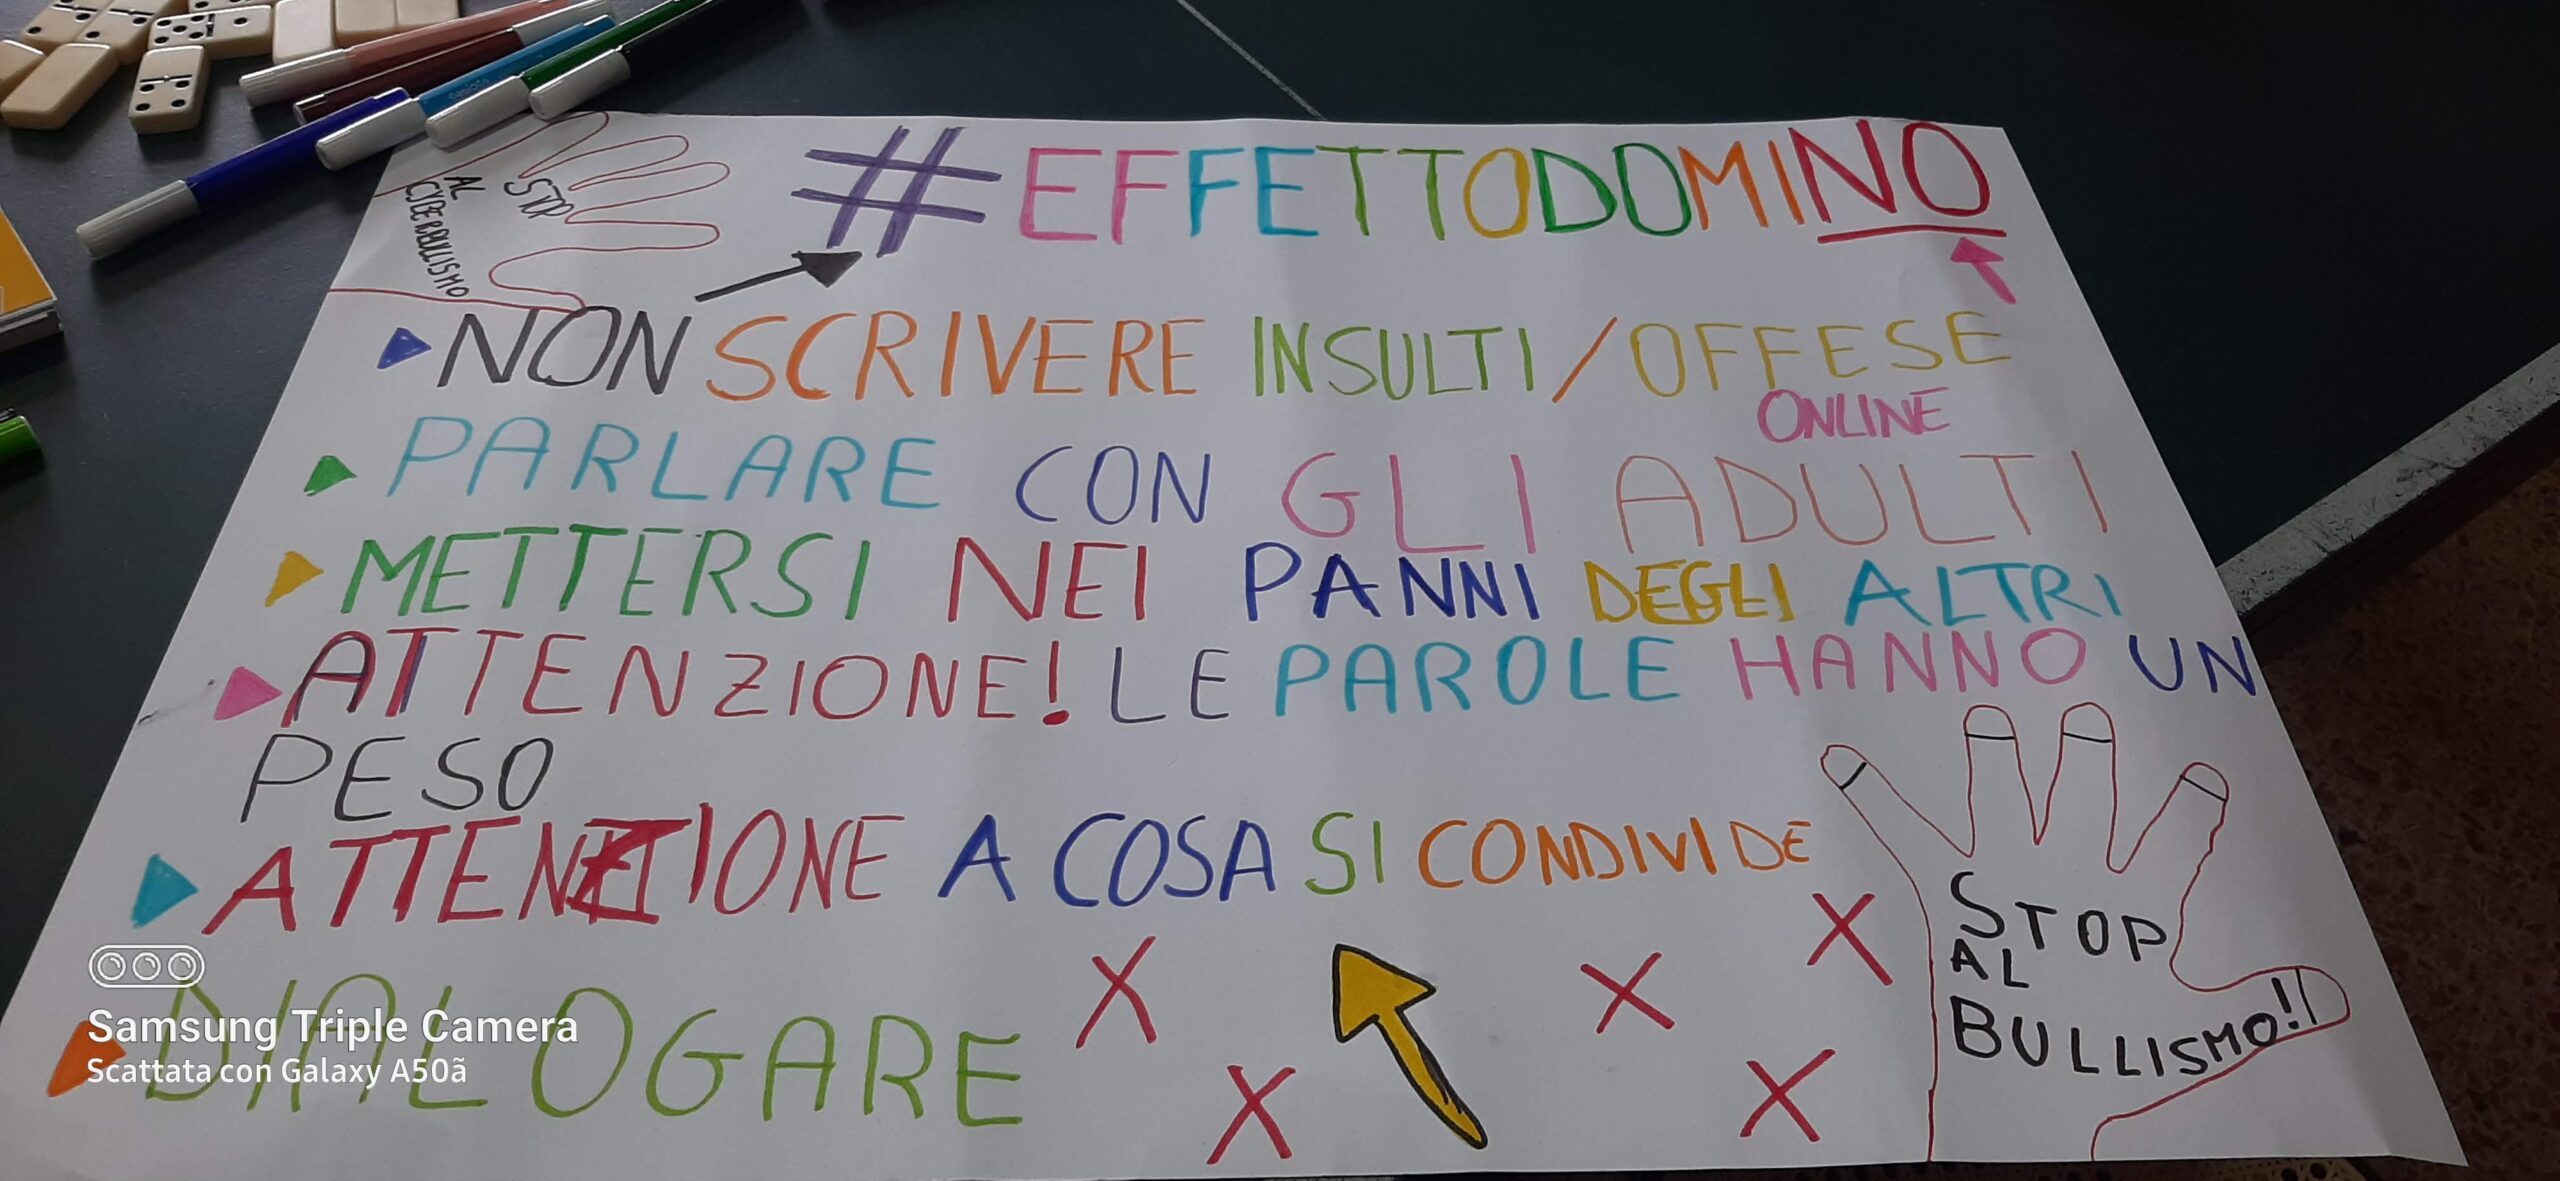 #EFFETTODOMINO
STOP
AL
CYBERBULLISMO
NON SCRIVERE INSULTI/OFFESE
ONLINE
PARLARE CON GLI ADULTI
METTERSI NEI PANNI DEGLI ALTRI
ATTENZIONE! LE PAROLE HANNO UN
PESO
ATTENZIONE A COSA SI CONDIVIDE
DIALOGARE
X X X X X
STOP
AL
BULLISMO!
Samsung Triple Camera
Scattata con Galaxy A50ã